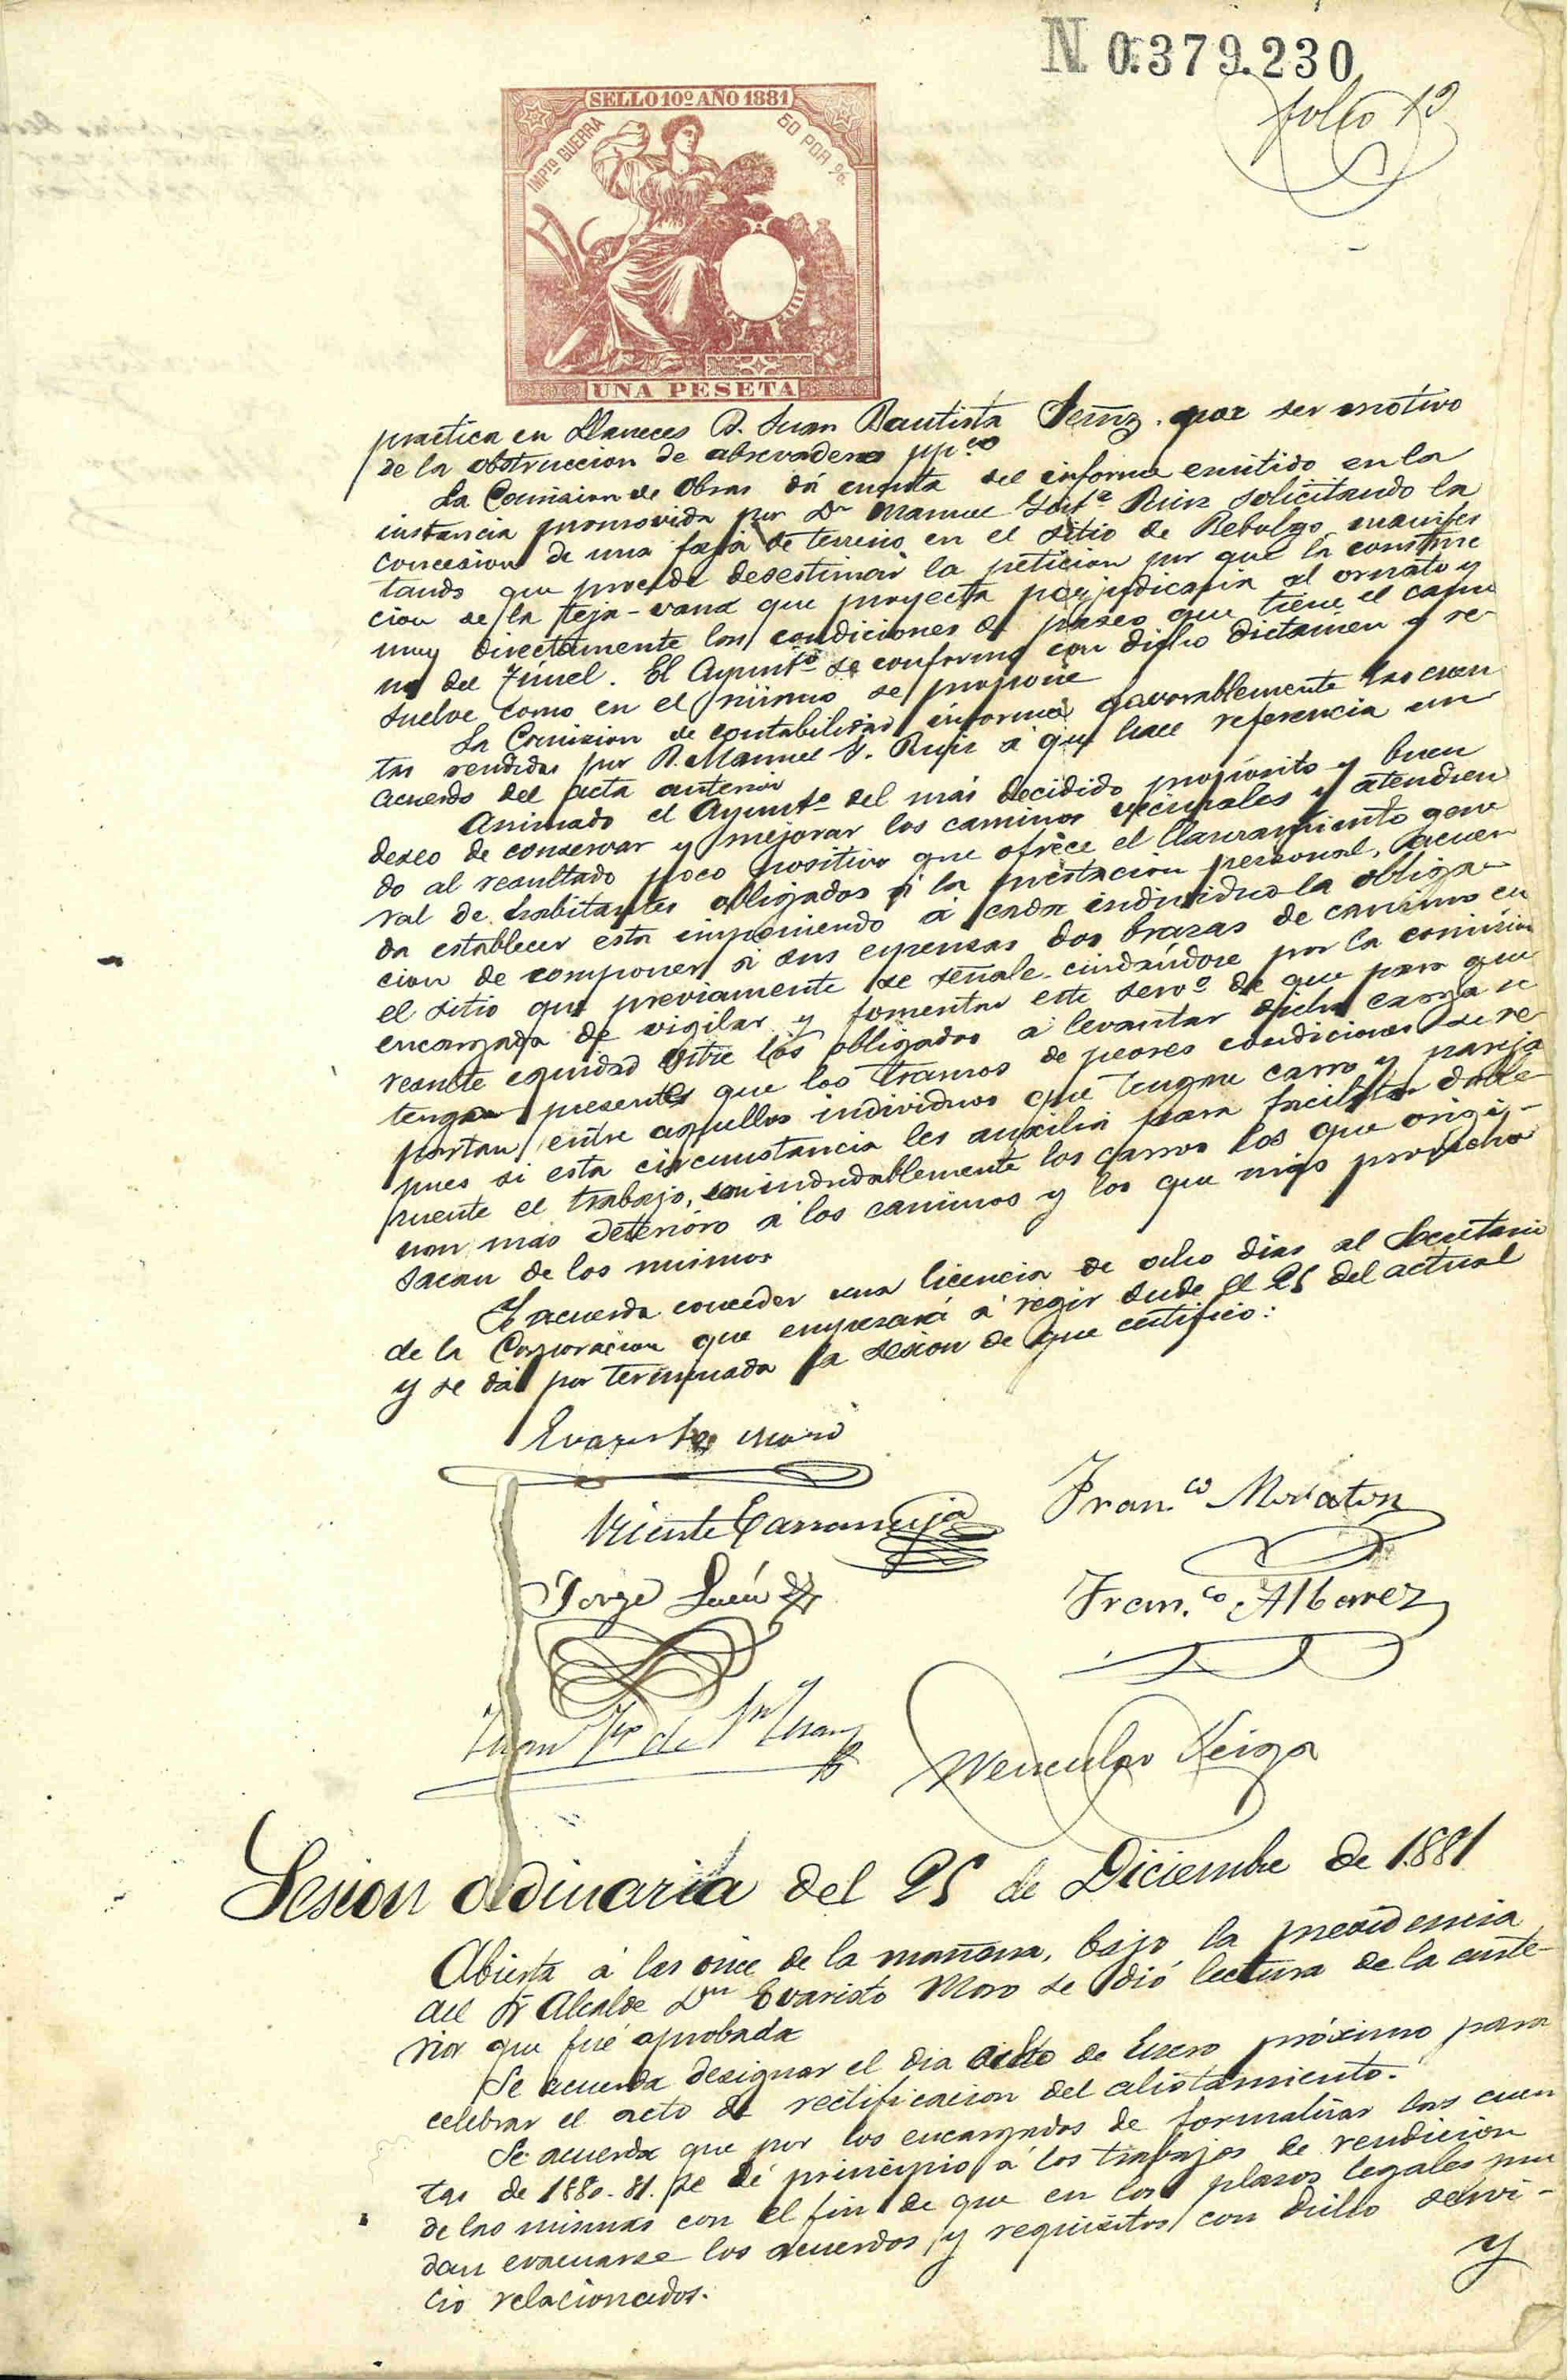 N 0.379.230
folio 13
SELLO 10º AÑO 1881
IMPTO GUERRA
50 POR %.
UNA PESETA
practica en Llaneces D. Juan Bautista por ser motivo
de la obstruccion de abrevaderos ppcos
La Comision de Obras dá cuenta del informe emitido en la
instancia promovida por Dn Manuel Ruiz solicitando la
concesion de una faja de terreno en el sitio de Rebolgo manifes
tando que procede desestimar la peticion por que la construc
cion de la teja-vana que proyecta perjudicaria al ornato y
muy directamente las condiciones de paseo que tiene el cami
no del Túnel. El Ayuntº se conforma con dicho dictamen y re-
suelve como en el mismo se propone
La Comision de contabilidad informa favorablemente las cuen
tas rendidas por D. Manuel Ruiz á que hace referencia un
acuerdo del acta anterior
Animado el Ayuntº del más decidido proposito y buen
deseo de conservar y mejorar los caminos vecinales y atendien
do al resultado poco positivo que ofrece el llamamiento gene
ral de habitantes obligados á la prestacion personal, acuer
da establecer esta imponiendo á cada individuo la obliga-
cion de componer á sus expensas dos brazas de camino en
el sitio que previamente se señale cuidándose por la comision
encargada de vigilar y fomentar este servº de que para que
resulte equidad entre los obligados á levantar dicha carga se
tengan presentes que los tramos de peores condiciones se re-
partan entre aquellos individuos que tengan carro y pareja
pues si esta circunstancia les auxilia para facilitar doble-
mente el trabajo, son indudablemente los carros los que origi-
nan más deterióro á los caminos y los que más provecho
sacan de los mismos
Se acuerda conceder una licencia de ocho dias al Secretario
de la Corporacion que empezará á regir desde el 25 del actual
y se dá por terminada la sesion de que certifico:
Evaristo Moro
Vicente Carranceja
Fran.co Moraton
Jorge
Fran.co Albarez
Juan de Sn Juan
Wenceslao Veiga
Sesion ordinaria del 25 de Diciembre de 1881
Abierta á las once de la mañana, bajo la presidencia
del Sr Alcalde Dn Evaristo Moro se dió lectura de la ante-
rior que fué aprobada
Se acuerda designar el dia ocho de Enero próximo para
celebrar el acto de rectificacion del alistamiento.
Se acuerda que por los encargados de formalizar las cuen
tas de 1880-81. se dé principio á los trabajos de rendicion
de las mismas con el fin de que en los plazos legales pue
dan evacuarse los acuerdos y requisitos con dicho servi-
cio relacionados.
y